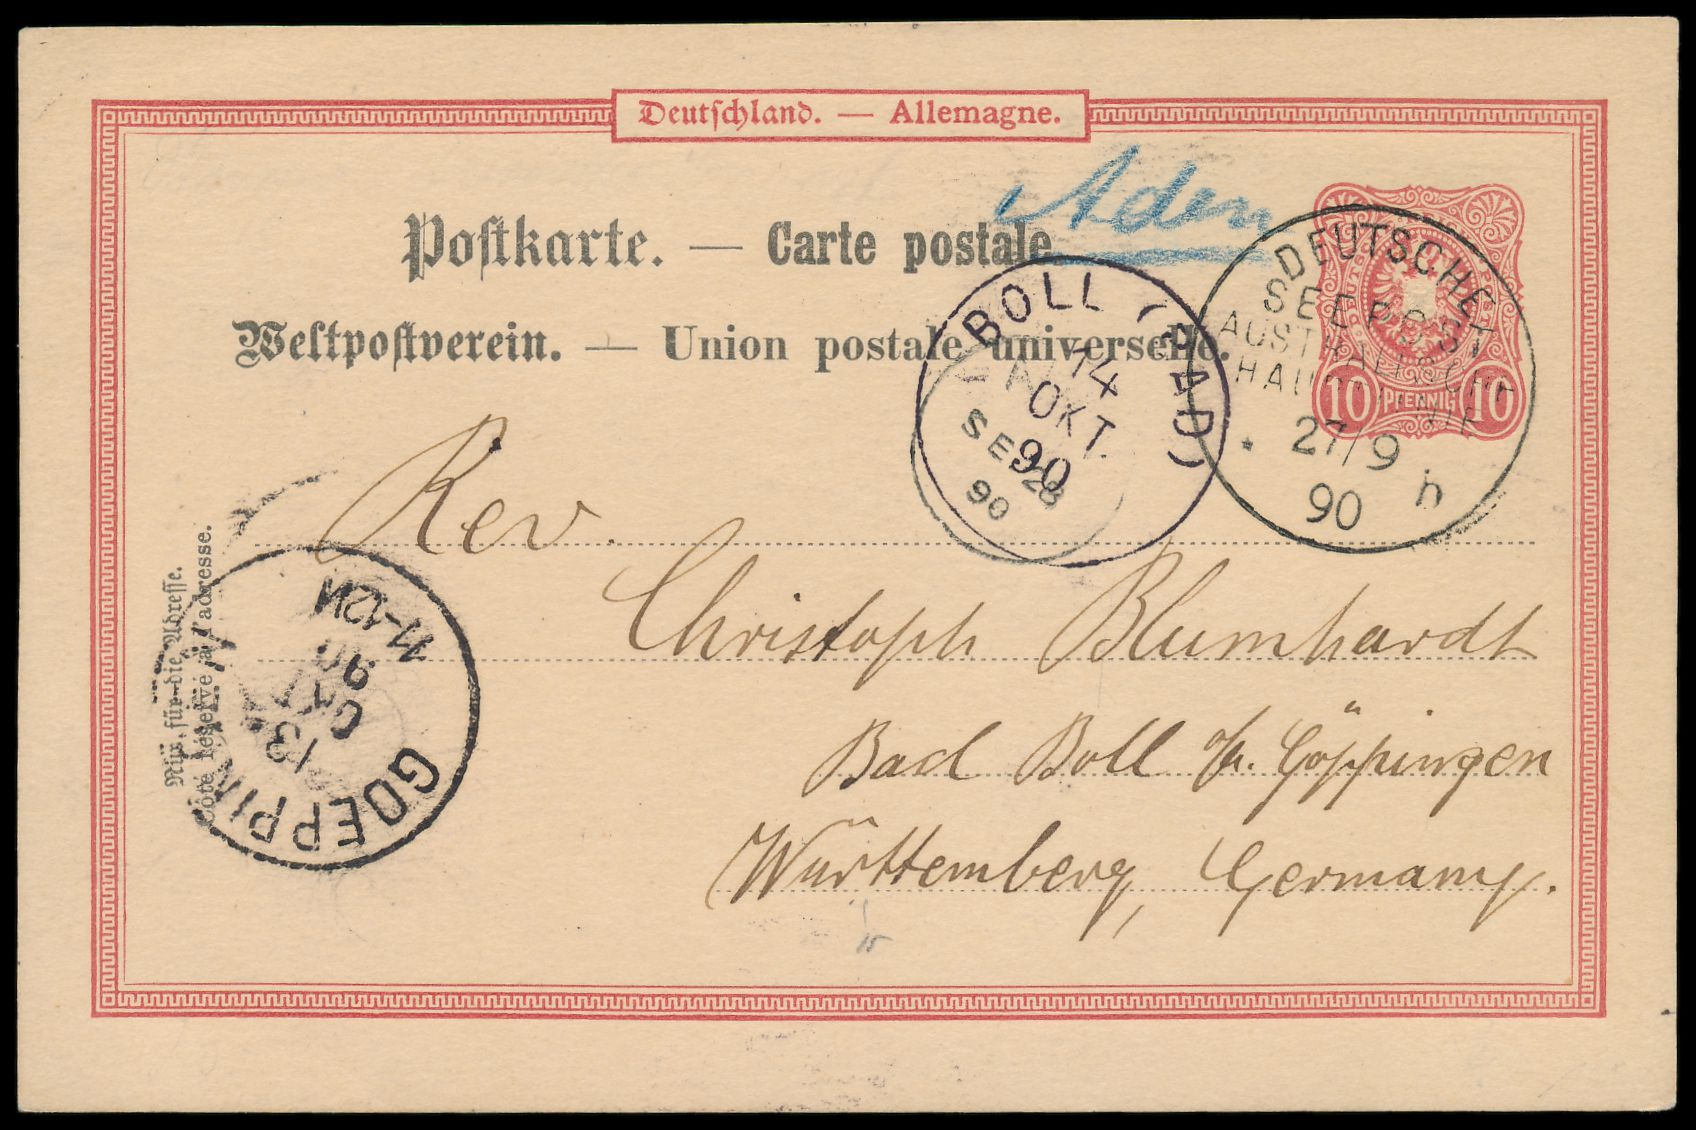 Deutschland. — Allemagne.
Aden
Postkarte. — Carte postale.
Weltpostverein. — Union postale universelle.
DEUTSCHE
SEEPOST
AUSTRALISCHE
HAUPTLINIE
* 27/9 h
90
10 PFENNIG 10
BOLL (BAD)
14
OKT.
90
A
SE 28
90
Rev.
Christoph Blumhardt
Bad Boll o/a. Göppingen
Württemberg, Germany.
Nur für die Adresse.
Côté réservé à l'adresse.
GOEPPINGEN
13
OKT
90
11-12V
15